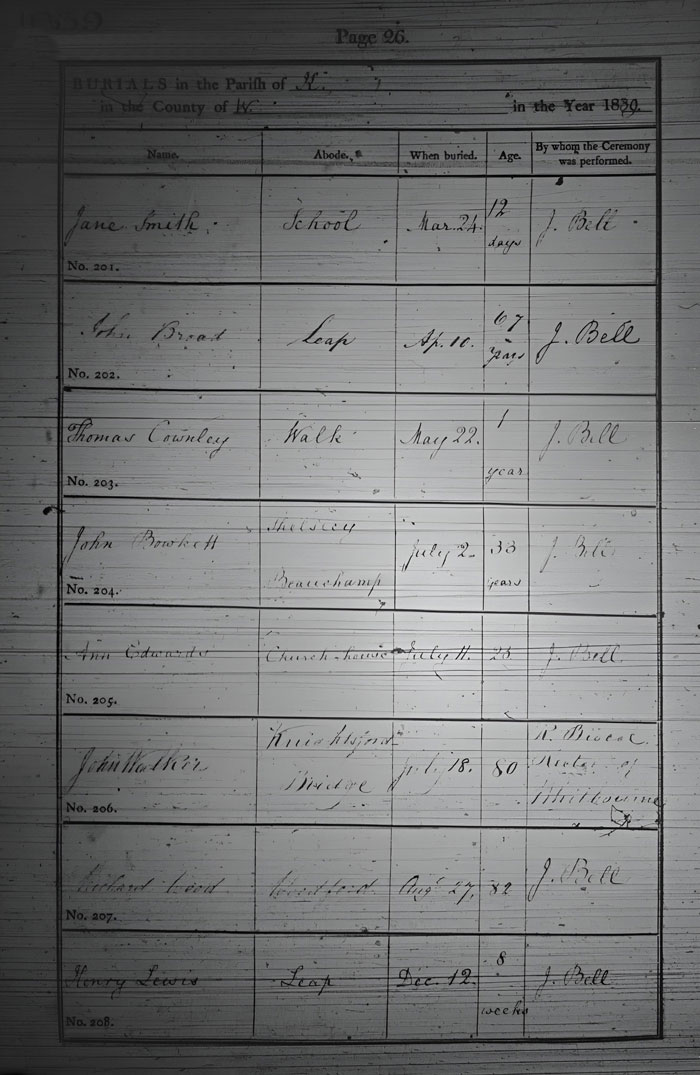 Page 26.
BURIALS in the Parish of K.
in the County of W. in the Year 1839.
Name. Abode. When buried. Age. By whom the Ceremony was performed.
Jane Smith School Mar. 24. 12 days J. Bell
No. 201.
John Broad Leap Ap. 10. 67 years J. Bell
No. 202.
Thomas Cownley Walk May 22. 1 year J. Bell
No. 203.
John Bowkett Shelsley Beauchamp July 2. 33 years J. Bell
No. 204.
Ann Edwards Church-house July 11. 23 J. Bell
No. 205.
John Walker Knightsford Bridge July 18. 80 R. Biscoe Rector of Whitbourne
No. 206.
Richard Wood Woodford Aug. 27, 82 J. Bell
No. 207.
Henry Lewis Leap Dec. 12. 8 weeks J. Bell
No. 208.